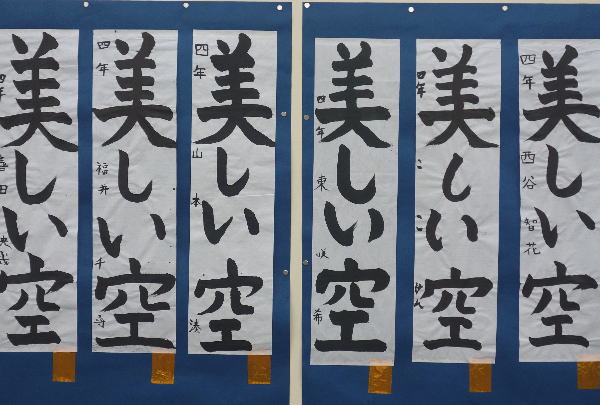 美しい空
四年
美しい空
四年 福井 千尋
美しい空
四年 山本 湊
美しい空
四年 東 咲希
美しい空
四年
美しい空
四年 西谷 智花